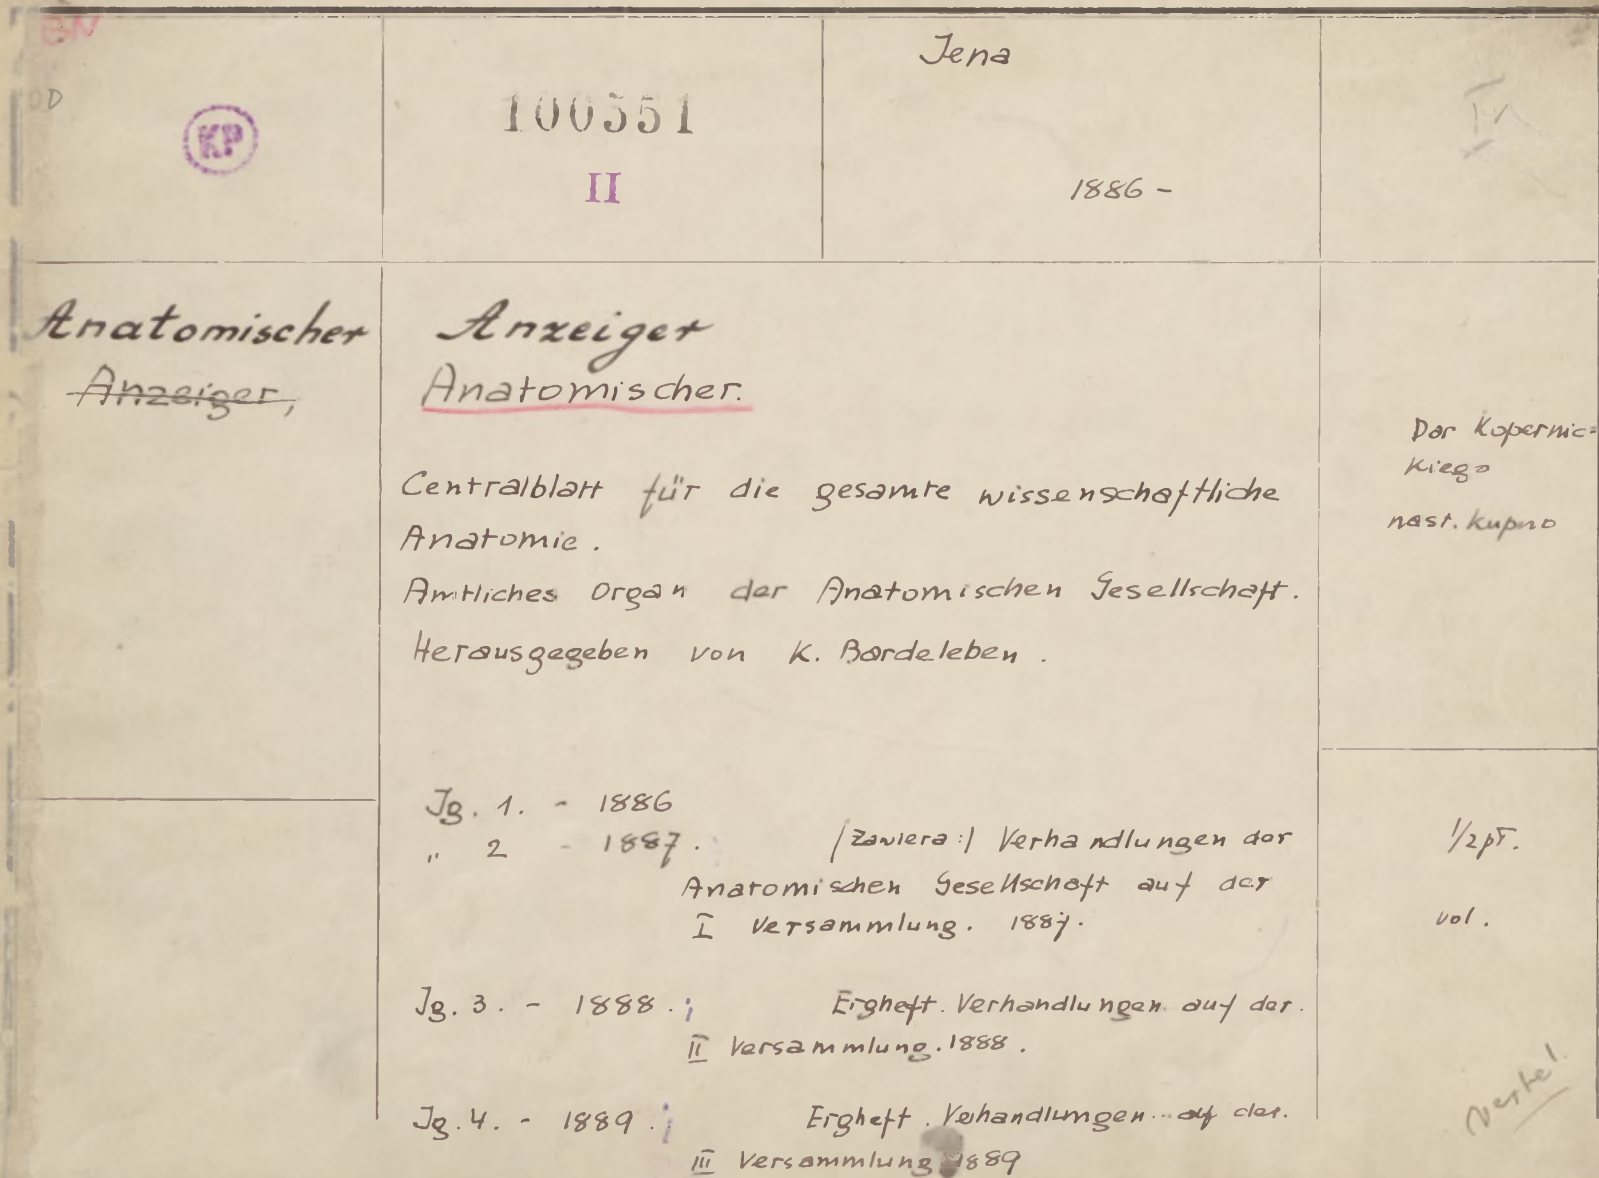 BN
KP
100551
II
Jena
1886 -
Anatomischer
Anzeiger,
Anzeiger
Anatomischer.
Centralblatt für die gesamte wissenschaftliche
Anatomie.
Amtliches Organ der Anatomischen Gesellschaft.
Herausgegeben von K. Bardeleben.
Dar Kopernic=
kiego
nast. kupno
Jg. 1. - 1886
" 2 - 1887. /Zawiera:/ Verhandlungen der
Anatomischen Gesellschaft auf der
I Versammlung. 1887.
1/2 pł.
vol.
Jg. 3. - 1888.; Ergheft. Verhandlungen auf der.
II Versammlung. 1888.
Jg. 4. - 1889.; Ergheft. Vehandlungen auf der.
III Versammlung 1889